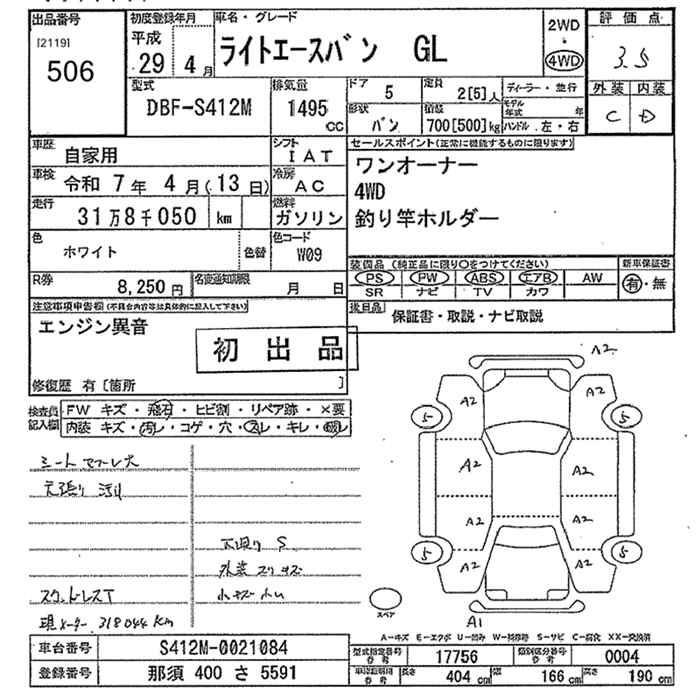 出品番号
[2119]
506
初度登録年月
平成
29 4月
車名・グレード
ライトエースバン GL
2WD
4WD
評価点
3.5
外装 内装
C D
型式
DBF-S412M
排気量
1495
cc
ドア
5
定員
2[5]人
形状
バン
積載
700[500]kg
ディーラー・並行
モデル年式 年
ハンドル 左・右
車歴
自家用
シフト
IAT
車検
令和 7年 4月(13日)
冷房
AC
走行
31万8千050 km
燃料
ガソリン
色
ホワイト
色替
色コード
W09
R券
8,250円
名変通知期限
月 日
セールスポイント(正常に機能するものに限ります)
ワンオーナー
4WD
釣り竿ホルダー
装備品(純正品に限り○をつけてください)
PS PW ABS エアB AW
SR ナビ TV カワ
新車保証書
有・無
後日品
保証書・取説・ナビ取説
注意事項申告欄(不具合内容等は具体的に記入して下さい)
エンジン異音
初出品
修復歴 有[箇所 ]
検査員記入欄
FW キズ・飛石・ヒビ割・リペア跡・×要
内装 キズ・汚レ・コゲ・穴・スレ・キレ・破レ
天張り 汚れ
下廻り S
外装
スタッドレスT
現メーター 318044 Km
A2
A2
A2
5
5
A2
A2
A2
A2
5
5
A2
A2
スペア
A1
A-キズ E-エクボ U-凹み W-補修跡 S-サビ C-腐食 XX-交換済
車台番号
S412M-0021084
登録番号
那須 400 さ 5591
型式指定番号
参考
17756
類別区分番号
参考
0004
車検証明内
参考
長さ
404 cm
幅
166 cm
高さ
190 cm